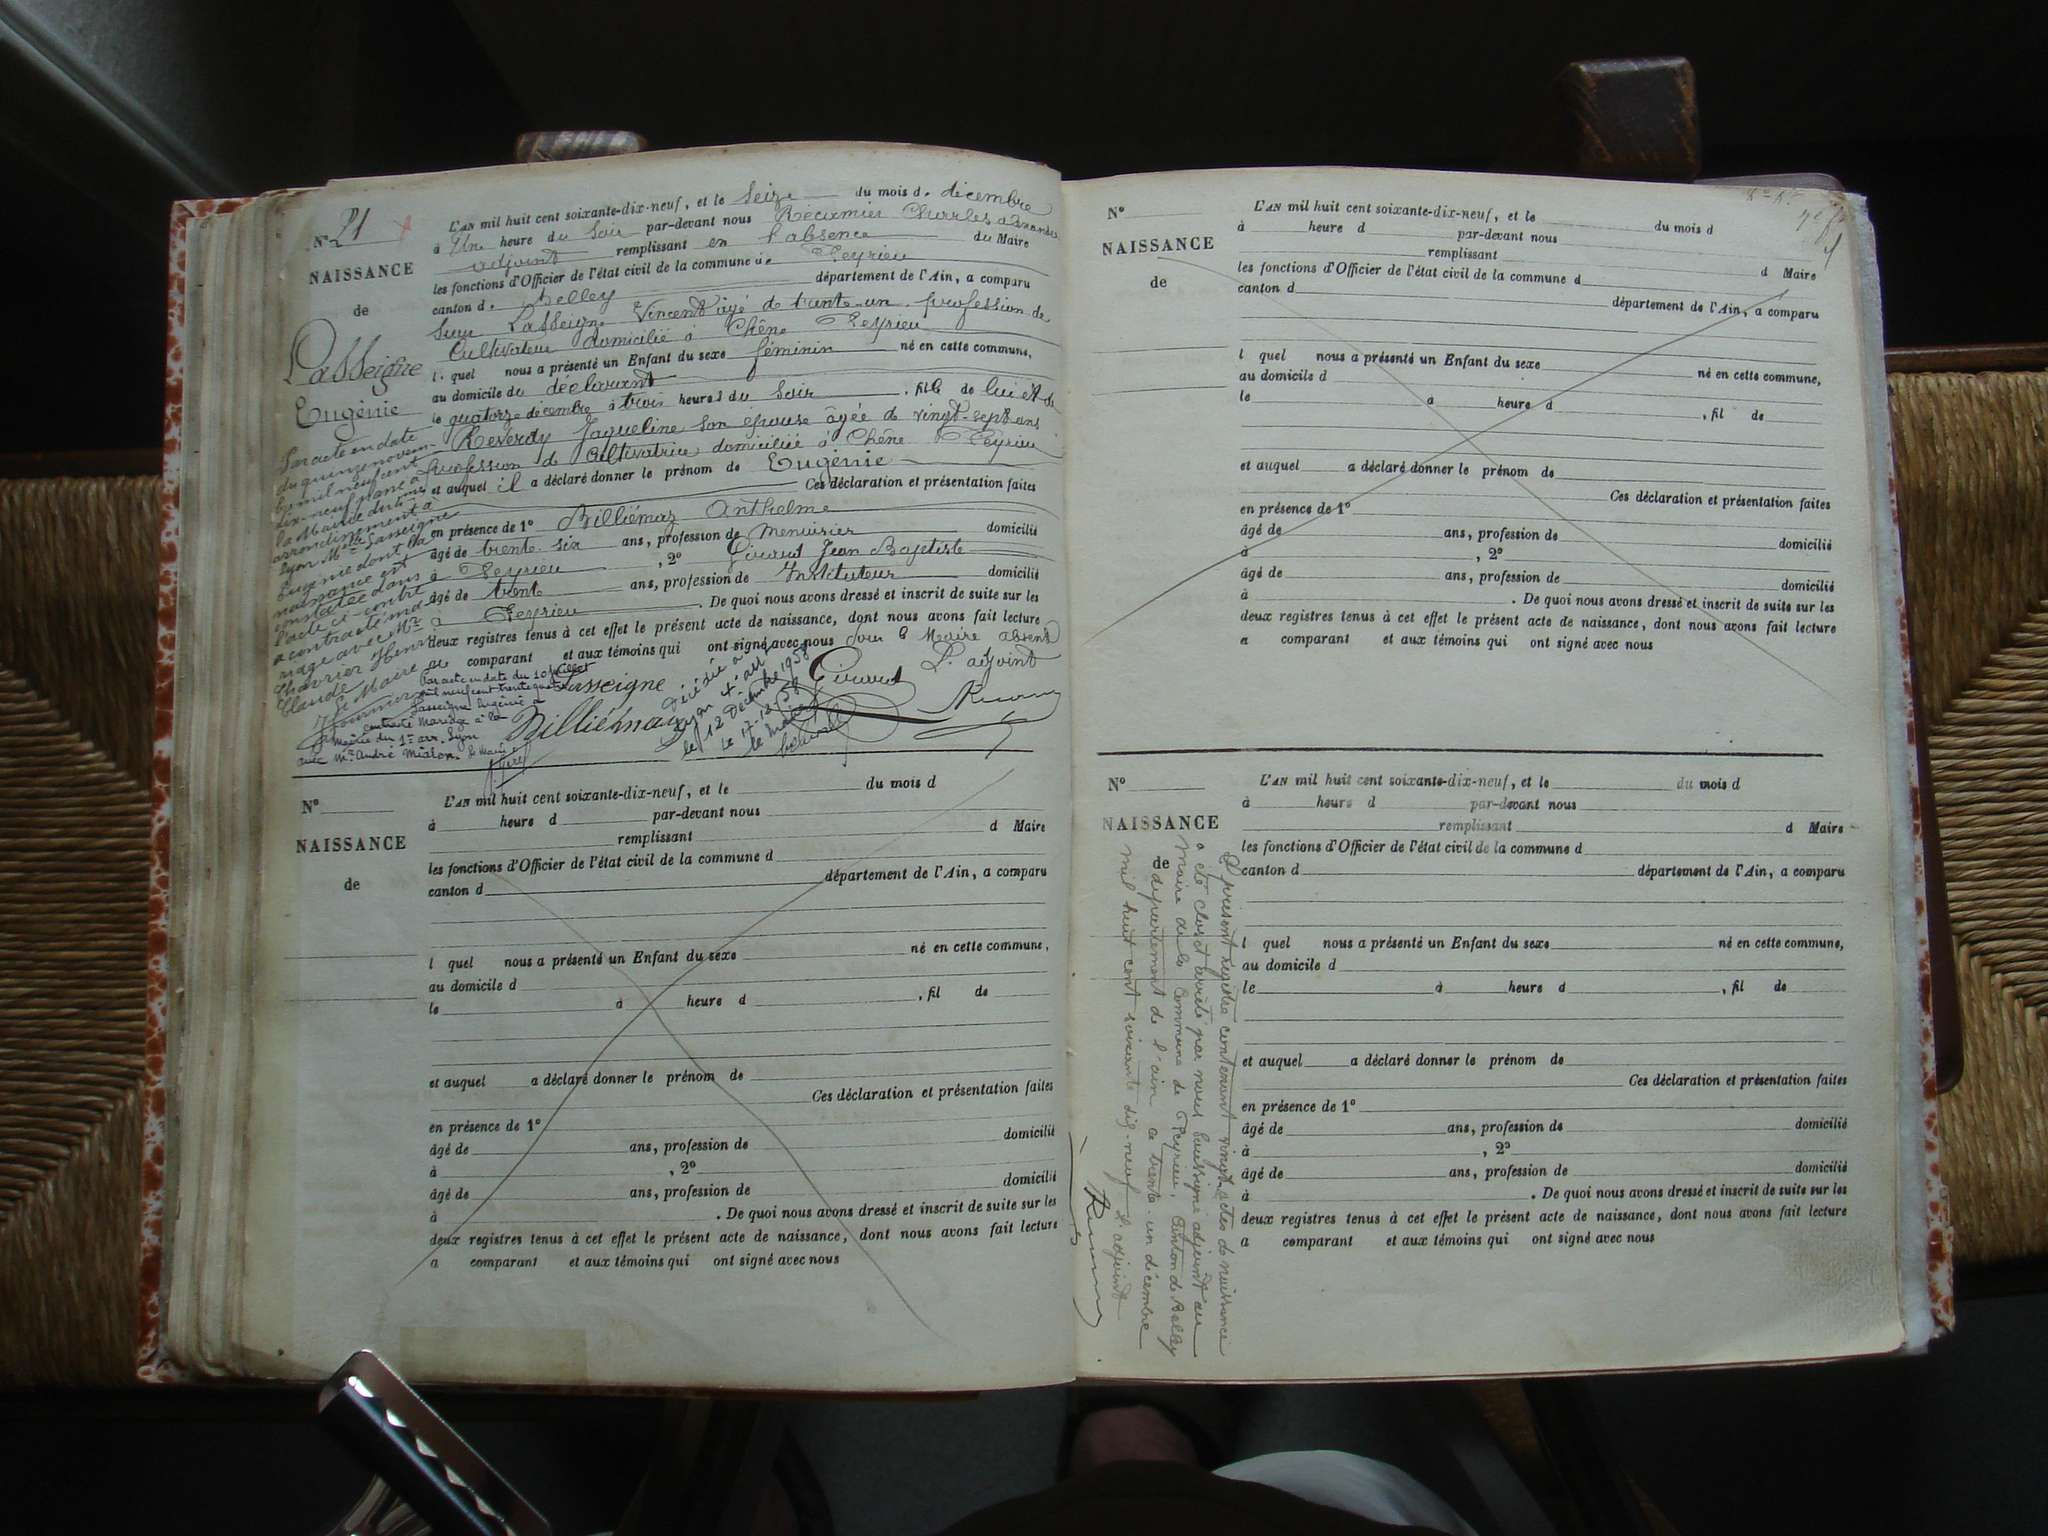 N° 21
NAISSANCE
de
Lasseigne
Eugénie
L'AN mil huit cent soixante-dix-neuf, et le seize du mois d. décembre
à Une heure du soir par-devant nous Récamier Charles
adjoint remplissant en l'absence du Maire
les fonctions d'Officier de l'état civil de la commune de Peyrieu
canton d. Belley département de l'Ain, a comparu
sieur Lasseigne Vincent âgé de trente-un profession de
Cultivateur domicilié à Chêne Peyrieu
l. quel nous a présenté un Enfant du sexe féminin né en cette commune,
au domicile du déclarant
le quatorze décembre à trois heures du soir , fille de lui et de
Reverdy Jaqueline son épouse âgée de vingt-sept ans
profession de Cultivatrice domiciliée à Chêne Peyrieu
et auquel il a déclaré donner le prénom de Eugénie
Ces déclaration et présentation faites
en présence de 1° Billiémaz Anthelme
âgé de trente six ans, profession de menuisier domicilié
à Peyrieu , 2° Girout Jean Baptiste
âgé de trente ans, profession de Instituteur domicilié
à Peyrieu . De quoi nous avons dressé et inscrit de suite sur les
deux registres tenus à cet effet le présent acte de naissance, dont nous avons fait lecture
au comparant et aux témoins qui ont signé avec nous Pour le Maire absent
L'adjoint
Lasseigne
Billiémaz
Par acte en date
du quinze novem-
bre mil neuf cent
dix-neuf passé à
la Mairie du 1er
arrondissement à
Lyon Melle Lasseigne
Eugénie dont la
naissance est
constatée dans
l'acte ci-contre
a contracté ma-
riage avec Mr
Chavrier Henri
Claude
Le Maire
Par acte en date du 10 juillet
mil neuf cent trente quatre
Lasseigne Eugénie a
contracté Mariage à la
Mairie du 1er arr. Lyon
avec Mr André Mialon. Le Maire
Décédée à
Lyon 4e arrt
le 12 Décembre 1958
Le 17-12-58
Le Maire
N°
NAISSANCE
de
L'AN mil huit cent soixante-dix-neuf, et le du mois d
à heure d par-devant nous
remplissant d Maire
les fonctions d'Officier de l'état civil de la commune d
canton d département de l'Ain, a comparu
l quel nous a présenté un Enfant du sexe né en cette commune,
au domicile d
le à heure d , fil de
et auquel a déclaré donner le prénom de
Ces déclaration et présentation faites
en présence de 1°
âgé de ans, profession de domicilié
à , 2°
âgé de ans, profession de domicilié
à . De quoi nous avons dressé et inscrit de suite sur les
deux registres tenus à cet effet le présent acte de naissance, dont nous avons fait lecture
a comparant et aux témoins qui ont signé avec nous
N°
NAISSANCE
de
L'AN mil huit cent soixante-dix-neuf, et le du mois d
à heure d par-devant nous
remplissant d Maire
les fonctions d'Officier de l'état civil de la commune d
canton d département de l'Ain, a comparu
l quel nous a présenté un Enfant du sexe né en cette commune,
au domicile d
le à heure d , fil de
et auquel a déclaré donner le prénom de
Ces déclaration et présentation faites
en présence de 1°
âgé de ans, profession de domicilié
à , 2°
âgé de ans, profession de domicilié
à . De quoi nous avons dressé et inscrit de suite sur les
deux registres tenus à cet effet le présent acte de naissance, dont nous avons fait lecture
a comparant et aux témoins qui ont signé avec nous
N°
NAISSANCE
de
L'AN mil huit cent soixante-dix-neuf, et le du mois d
à heure d par-devant nous
remplissant d Maire
les fonctions d'Officier de l'état civil de la commune d
canton d département de l'Ain, a comparu
l quel nous a présenté un Enfant du sexe né en cette commune,
au domicile d
le à heure d , fil de
et auquel a déclaré donner le prénom de
Ces déclaration et présentation faites
en présence de 1°
âgé de ans, profession de domicilié
à , 2°
âgé de ans, profession de domicilié
à . De quoi nous avons dressé et inscrit de suite sur les
deux registres tenus à cet effet le présent acte de naissance, dont nous avons fait lecture
a comparant et aux témoins qui ont signé avec nous
Le présent registre contenant vingt actes de naissance
a été clos et arrêté par nous soussigné adjoint au
Maire de la Commune de Peyrieu, Canton de Belley
département de l'ain ce trente-un décembre
mil huit cent soixante dix-neuf L'adjoint